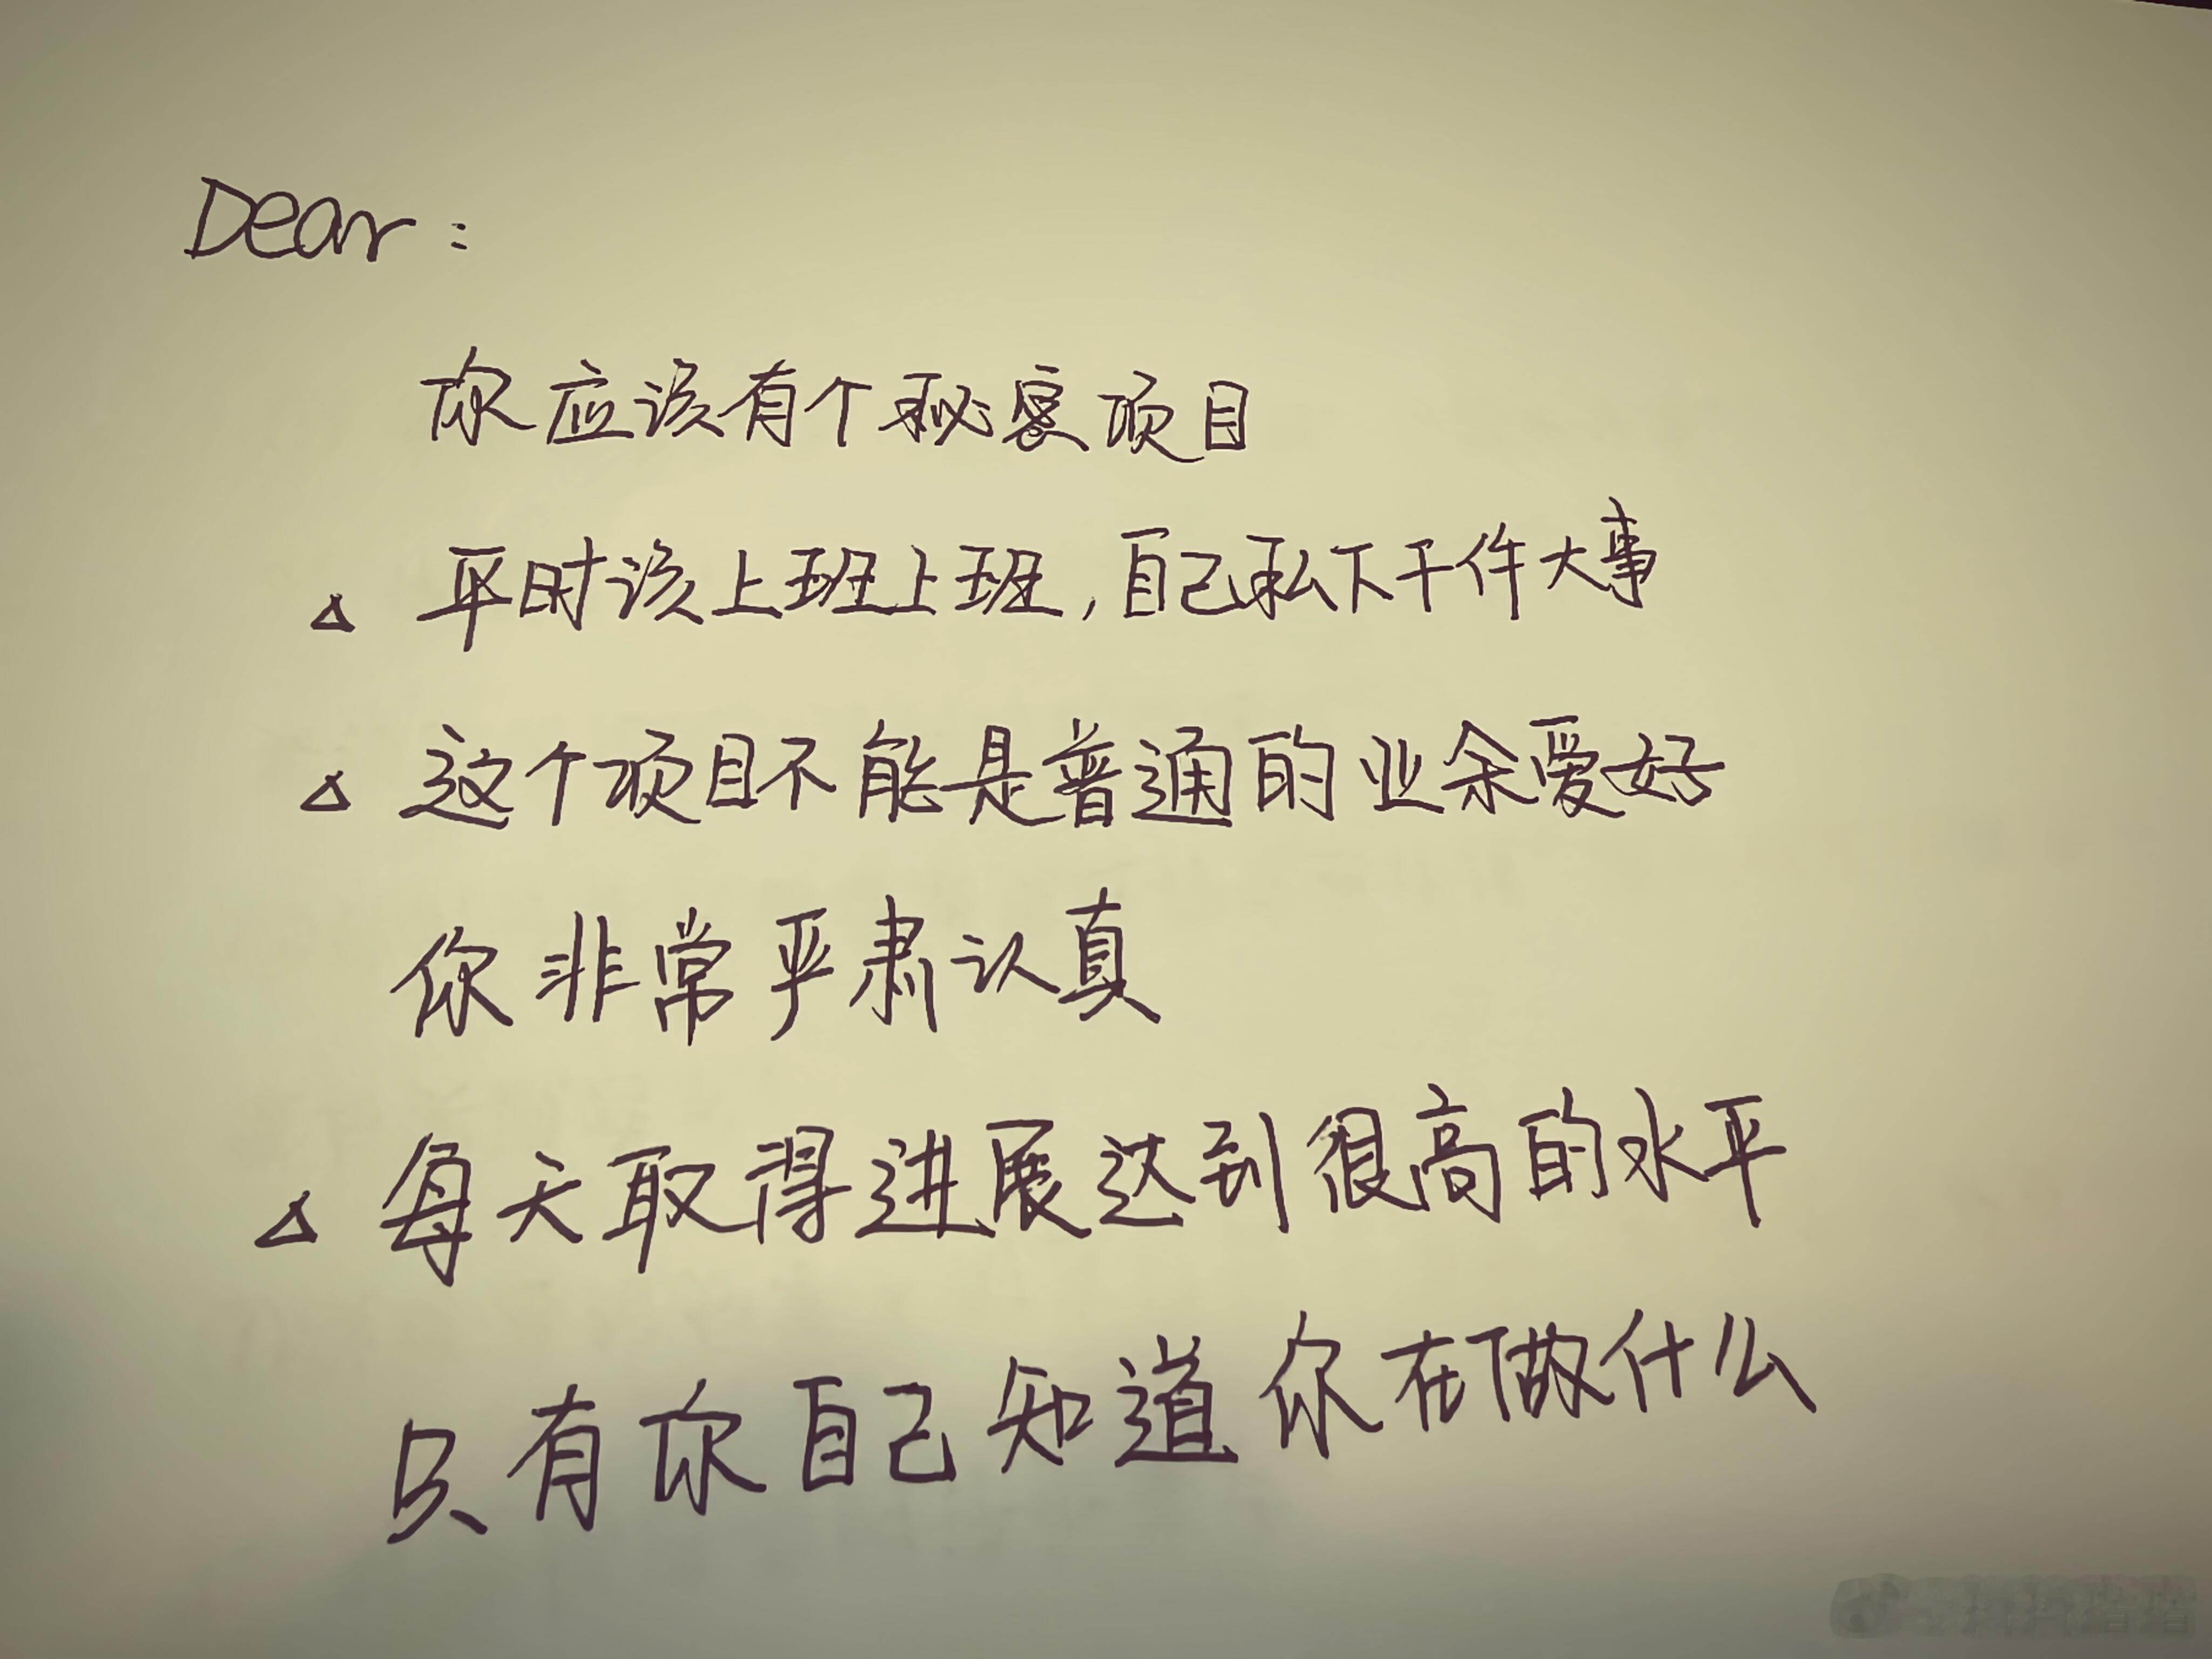 Dear:
你应该有个秘密项目
△ 平时该上班上班,自己私下干件大事
△ 这个项目不能是普通的业余爱好
你非常严肃认真
△ 每天取得进展达到很高的水平
只有你自己知道你在做什么